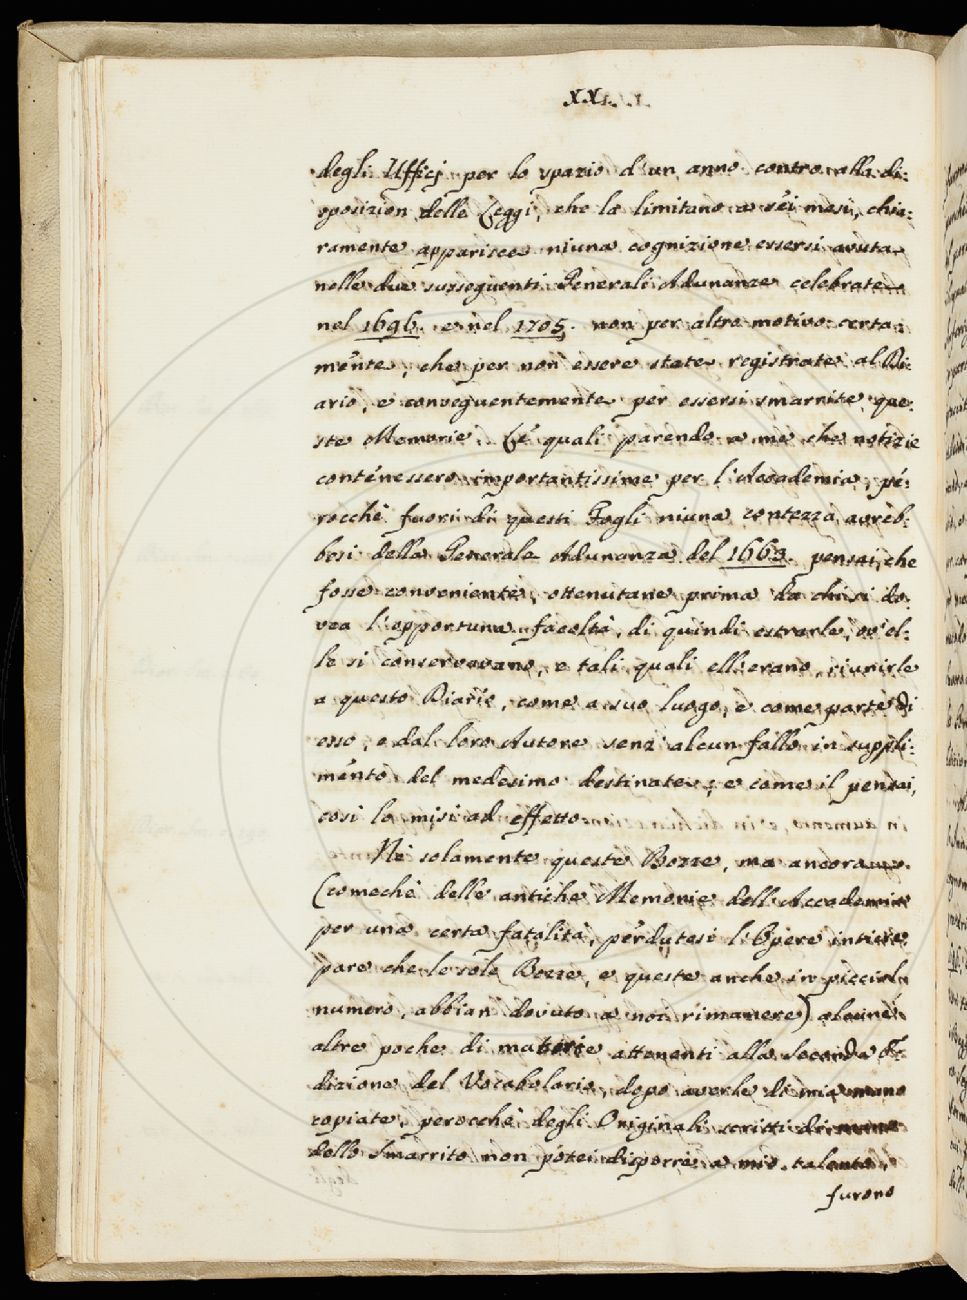 degli Ufficj per lo spazio d'un anno contro alla di:
sposizion delle Leggi, che la limitano a sei mesi, chia:
ramente apparisce niuna cognizione essersi avuta
nelle due susseguenti Generali Adunanze celebrate
nel 1696. e nel 1705. non per altro motivo certa:
mente, che per non essere state registrate al Di:
ario, e conseguentemente per essersi smarrite que:
ste Memorie. Le quali parendo a me che notizie
contenessero importantissime per l'Accademia, pe:
rocchè fuori di questi Fogli niuna contezza avreb:
besi della Generale Adunanza del 1663. pensai, che
fosse conveniente, ottenutane prima da chi si do:
vea l'opportuna facoltà, di quindi estrarle, ov'el:
le si conservavano, e tali quali ell'erano, riunirle
a questo Diario, come a suo luogo, e come parte di
esso, e dal loro Autore senz'alcun fallo in suppli:
mento del medesimo destinate; e come il pensai,
così lo misi ad effetto.
Nè solamente queste Bozze, ma ancora
(comechè delle antiche Memorie dell'Accademia
per una certa fatalità, perdutesi l'Opere intiere
pare che le sole Bozze, e queste anche in picciol
numero, abbian dovuto a noi rimanere) alcune
altre poche di materie attenenti alla Seconda E:
dizione del Vocabolario, dopo averle di mia mano
copiate, perocchè degli Originali scritti di mano
dello Smarrito non potei disporre a mio talento,
furono